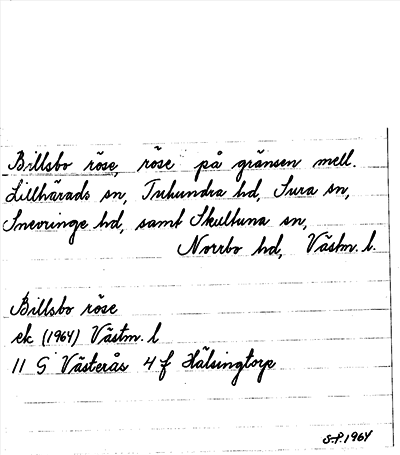 Billsbo röse, röse på gränsen mell.
Lillhärads sn, Tuhundra hd, Sura sn,
Snevringe hd, samt Skultuna sn,
Norrbo hd, Västm. l.
Billsbo röse
ek (1964) Västm. l
11 G Västerås 4 f Hälsingtorp
1964